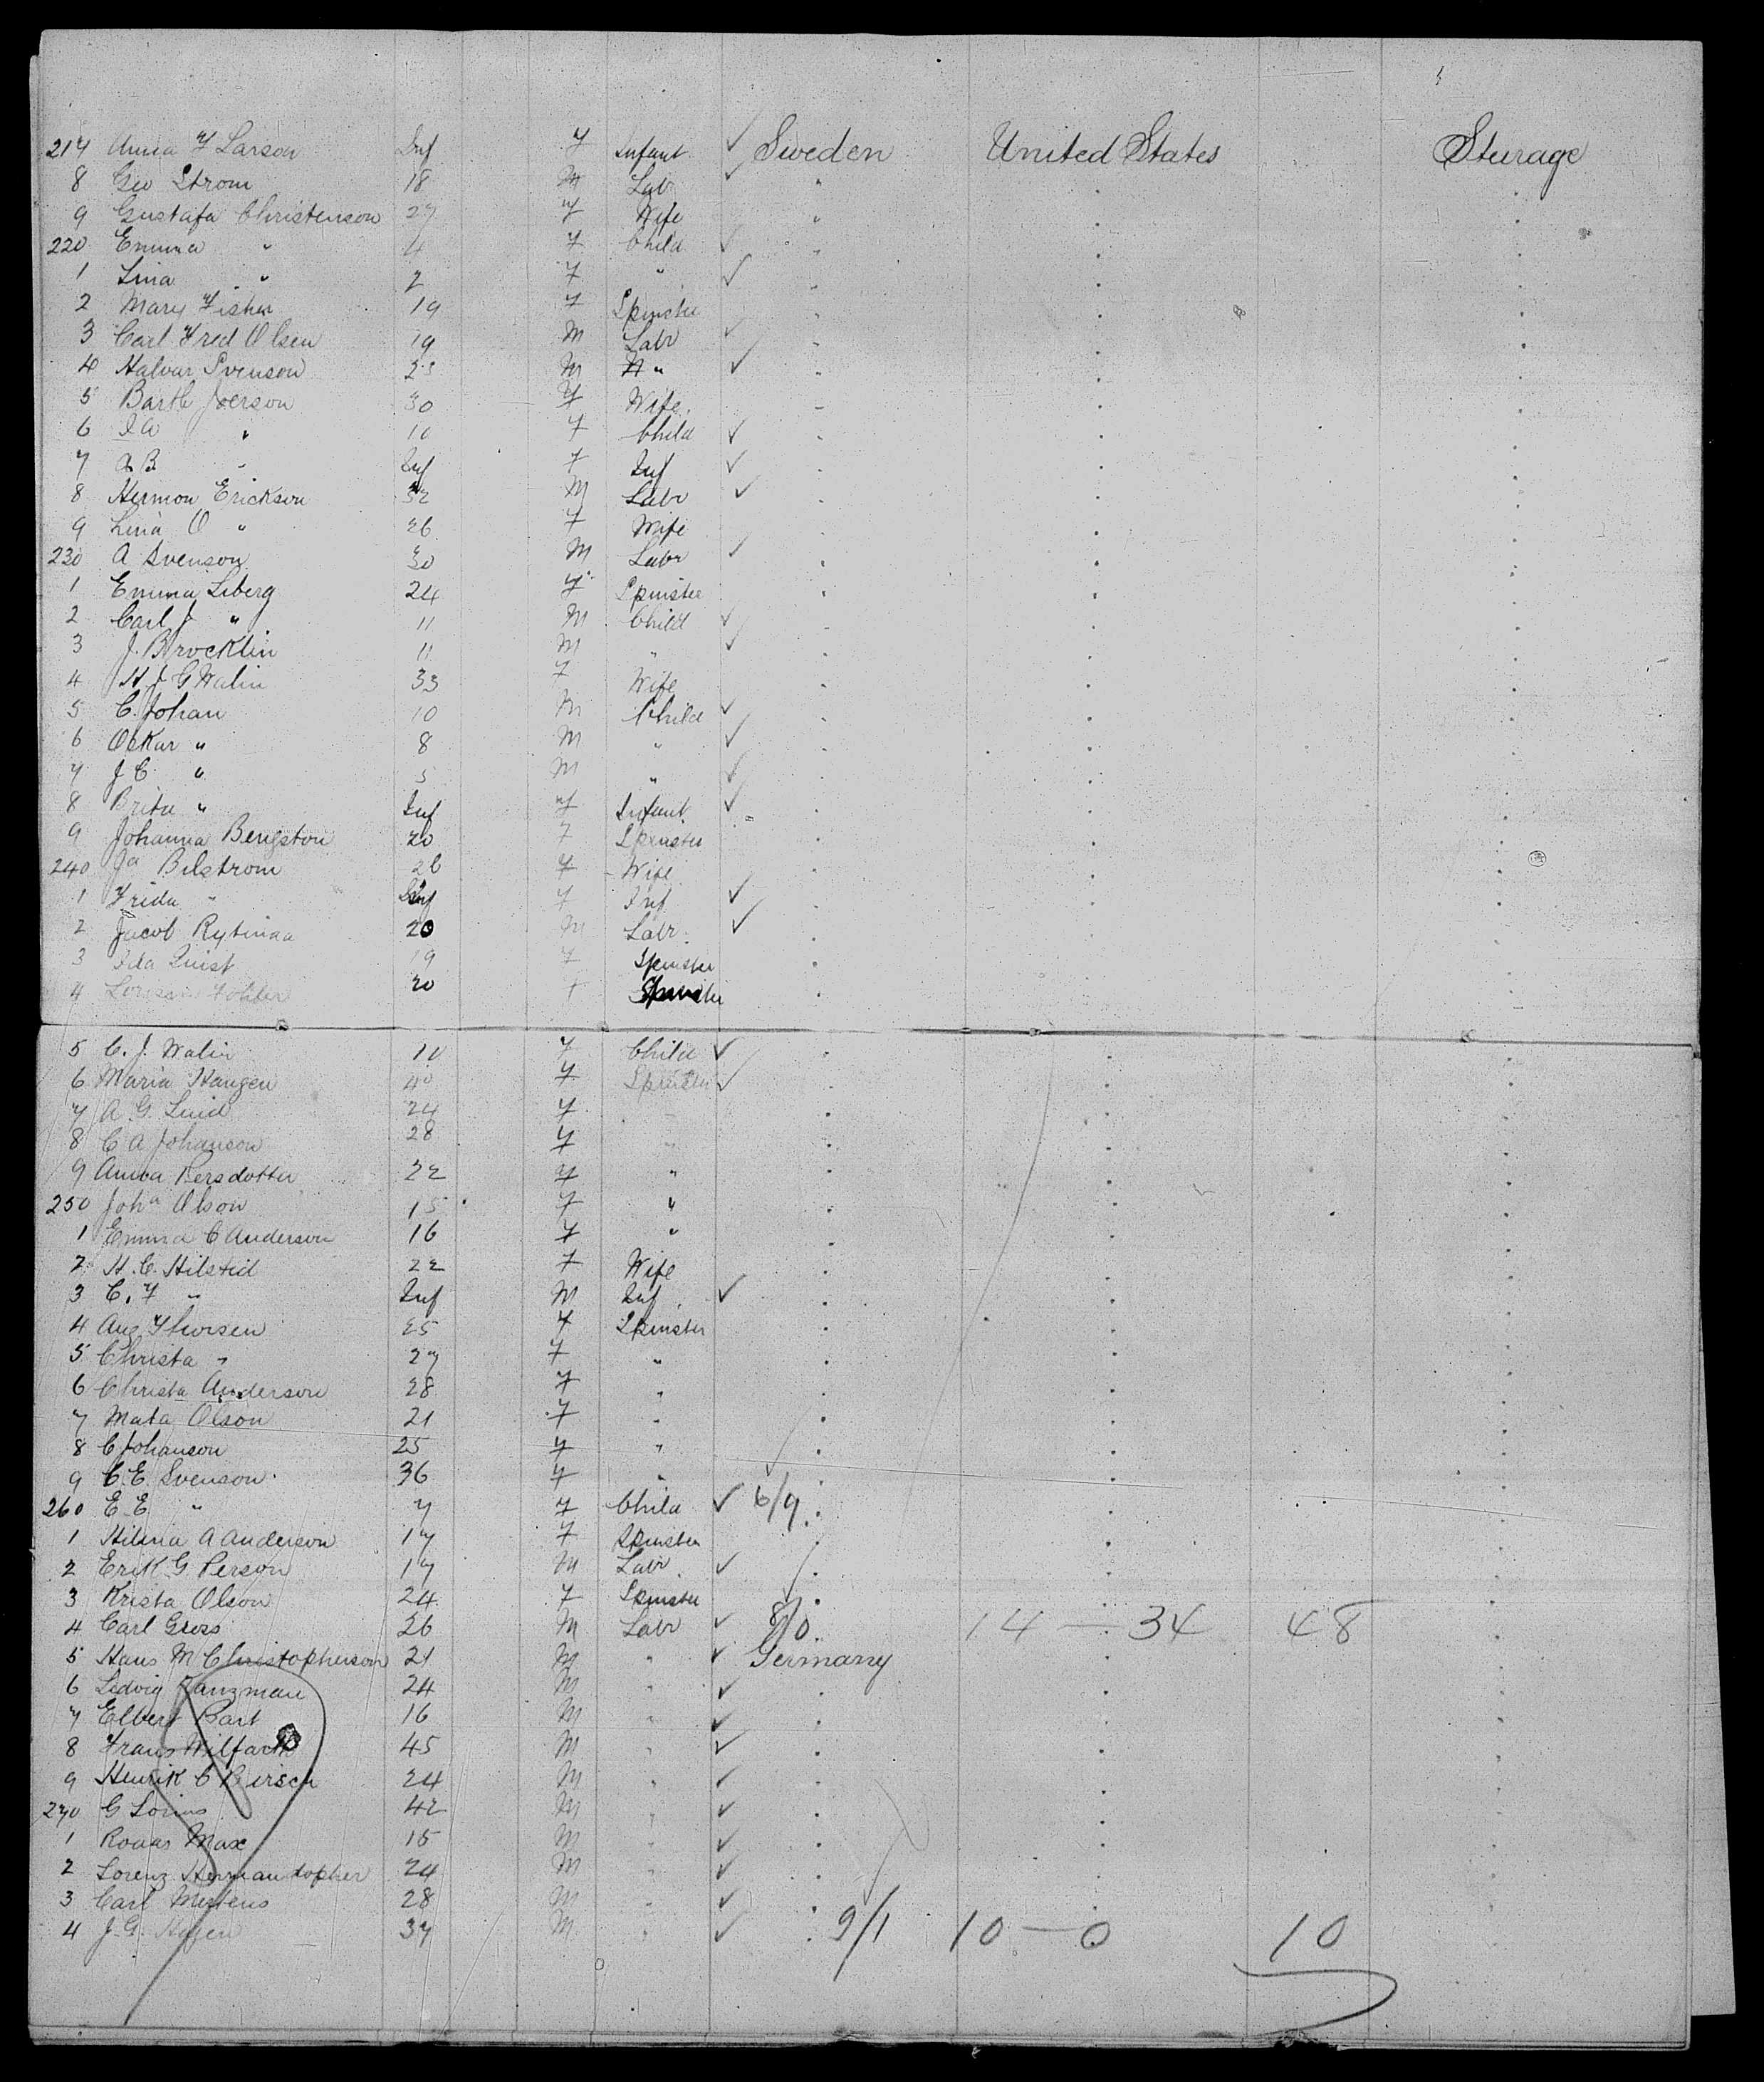 217 Anna F Larson Inf F Infant ✓ Sweden United States Sturage
8 Geo Strom 18 M Labr ✓ "
9 Gustafa Christenson 27 F Wife "
220 Emma " 4 F Child ✓ "
1 Lina " 2 F " ✓ "
2 Mary Fisher 19 F Spinster "
3 Carl Fred Olsen 19 M Labr ✓ "
4 Halvar Svenson M " ✓ "
5 Barth Joerson 30 F Wife "
6 I A " 10 F Child ✓ "
7 A B " Inf F Inf ✓ "
8 Hermon Erickson 32 M Labr ✓ "
9 Lina O " 26 F Wife "
230 A Svenson 30 M Labr ✓ "
1 Emma Liberg 24 F Spinster "
2 Carl J " 11 M Child ✓ "
3 J. Brocklin 11 M " ✓ "
4 H J G Walin 33 F Wife "
5 C. Johan 10 M Child ✓ "
6 Oskar " 8 M " ✓ "
7 J C " 5 M " ✓ "
8 Brita " Inf F Infant ✓ "
9 Johanna Bengston 20 F Spinster "
240 Ja Bilstrom 26 F Wife "
1 Frida " Inf F Inf ✓ "
2 Jacob Rytinaa 20 M Labr ✓ "
3 Ida Quist 19 F Spinster "
4 20 F Spinster "
5 C. J. Walin 10 F Child ✓ "
6 Maria Haugen 40 F Spinster ✓ "
7 A. G. Lind 24 F " "
8 C A Johanson 28 F " "
9 Anna Persdotter 22 F " "
250 Joha Olson 15 F " "
1 Emma C Anderson 16 F " "
2 H. C. Hilstid 22 F Wife "
3 C. F " Inf M Inf ✓ "
4 Aug Thorsen 25 F Spinster "
5 Christa " 27 F " "
6 Christa Anderson 28 F " "
7 Mata Olson 21 F " "
8 C Johanson 25 F " "
9 C. E Svenson 36 F " "
260 E E " 7 F Child ✓ 6/9
1 Hilma A Anderson 17 F Spinster "
2 Erik G Person 17 M Labr ✓ "
3 Krista Olson 24 F Spinster "
4 Carl Gross 26 M Labr ✓ 8/0 14 — 34 48
5 Hans M Christopherson 21 M " ✓ Germany
6 Ledvig Ranzman 24 M " ✓ "
7 Elbert Bart 16 M " ✓ "
8 Frans Wilfarth 45 M " ✓ "
9 Henrik C Birsch 24 M " ✓ "
270 G Lorins 42 M " ✓ "
1 Max 15 M " ✓ "
2 Lorenz Hermandopher 24 M " ✓ "
3 Carl Mertens 28 M " ✓ "
4 J. G. Hagen 37 M " ✓ 9/1 10 — 0 10